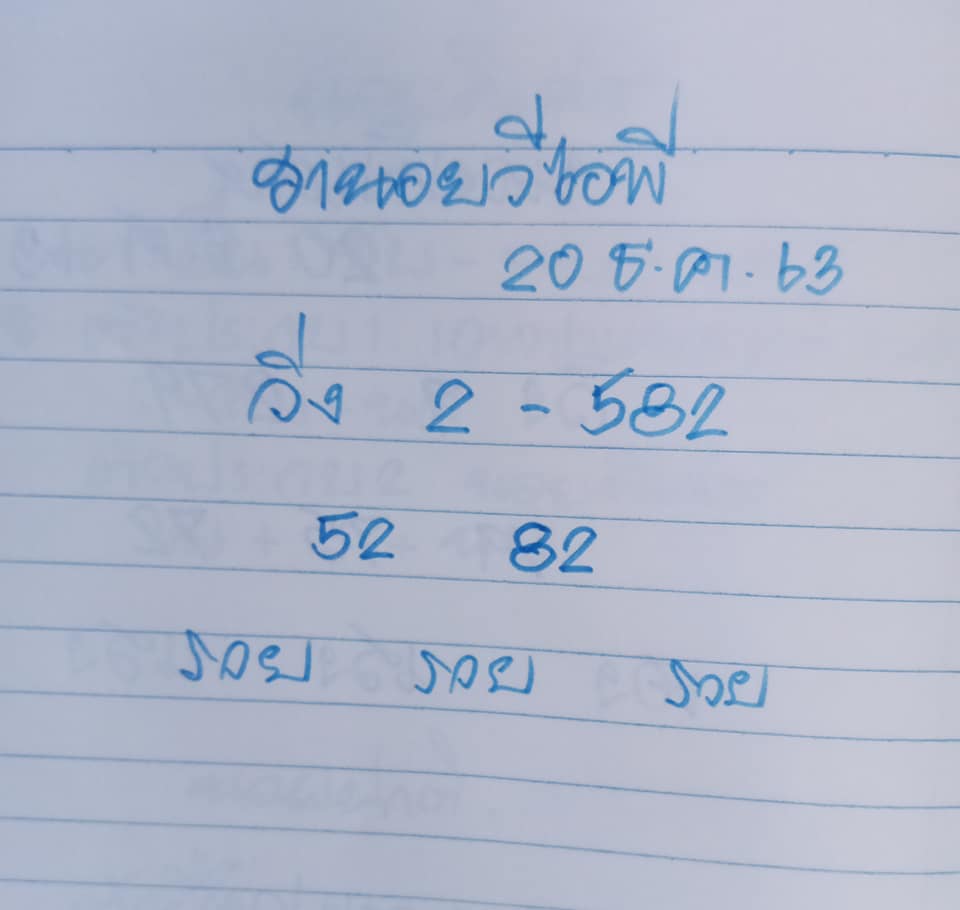 ฮานอยวีไอพี
20 ธ.ค. 63
วิ่ง 2 - 582
52 82
รวย รวย รวย